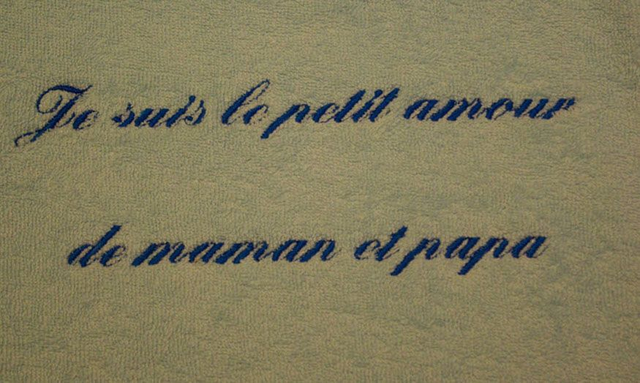 Je suis le petit amour
de maman et papa